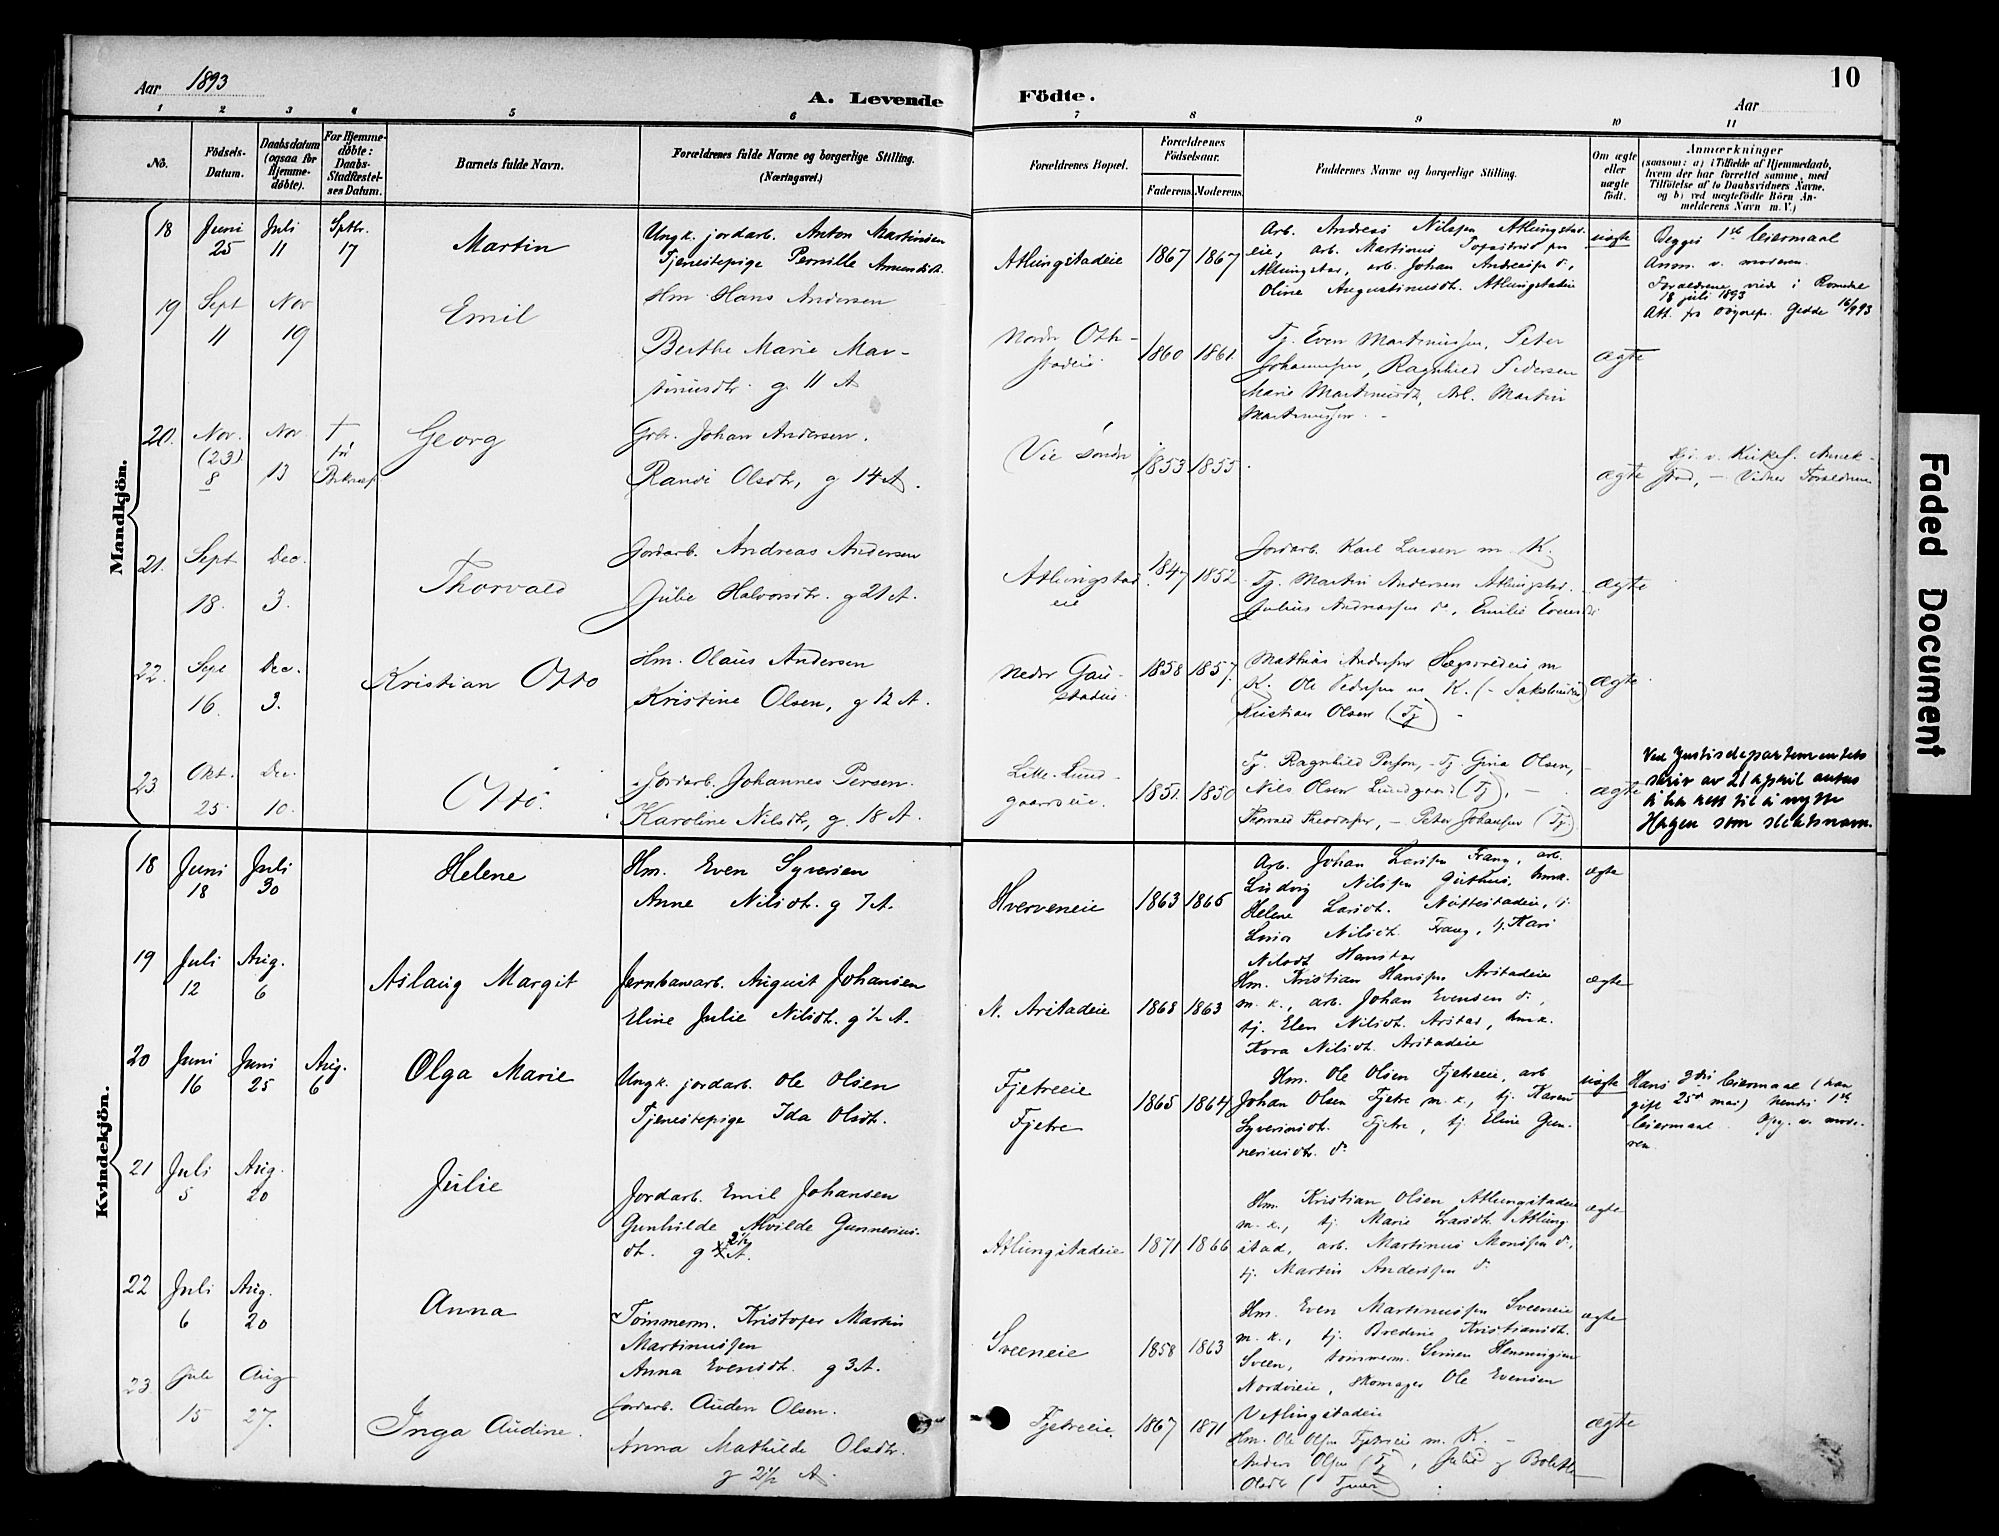 Aar 1893
A. Levende Födte.
Aar
10
1 2 3 4 5 6 7 8 9 10 11
No.
Födsels-Datum.
Daabsdatum (ogsaa for Hjemme-döbte).
For Hjemme-döbte: Daabs-Stadfæstel-ses Datum.
Barnets fulde Navn.
Forældrenes fulde Navne og borgerlige Stilling. (Næringsvei.)
Forældrenes Bopæl.
Forældrenes Födselsaar.
Faderens. Moderens.
Faddernes Navne og borgerlige Stilling.
Om ægte eller uægte födt.
Anmærkninger
(saasom: a) i Tilfælde af Hjemmedaab,
hvem der har forrettet samme, med
Tilföielse af to Daabsvidners Navne,
og b) ved uægtefödte Börn An-
melderens Navn m. V.)
Mandkjön.
18 Juni 25 Juli 11 Septbr. 17 Martin
Ungk. jordarb. Anton Martinsen
Tjenestepige Pernille Amundsdt.
Atlungstadeie 1867 1867
Arb. Andreas Nilsen Atlungstad-
eie, arb. Martinus
Atlungstad, arb. Johan Andreassen do,
Oline Augustinusdt. Atlungstadeie
uægte
Begges 1ste leiermaal
Anm. v. moderen.
Forældrene viede i Romedal
18 juli 1893
Att. fra sogneprest Gedde 16/9 93
19 Sept 11 Nov 19 Emil
Hm. Hans Andersen
Berthe Marie Mar-
tinusdtr. g. 11 A
Nordr Oth-
stadeie 1860 1861
Tj. Even Martinussen, Peter
Johannessen, Ragnhild Pedersen
Marie Martinusdt, Arb. Martin
Martinussen. -
ægte
20. Nov. (23) 8 Nov 13 † Georg
Gbr. Johan Andersen.
Randi Olsdtr, g 14 A.
Vie søndre 1853 1855.
ægte
v. Kirkes.
stad, - Vidner Forældrene
21. Sept 18. Dec. 3. Thorvald
Jordarb. Andreas Andersen
Julie Halvorsdtr. g 21 A.
Atlungstad
eie 1847 1852
Jordarb. Karl Larsen m. K.
Tj. Martin Andersen Atlungstad.
Julius Andreassen do, Emilie Evensdt
ægte
22. Sept 16. Dec. 3. Kristian Otto
Hm. Olaus Andersen
Kristine Olsen, g 12 A.
Nedre Gau-
stadeie. 1858 1857.
Mathias Andersen Hægsvedeie m
K. Ole Pedersen m K. (-
Kristian Olsen (Tj) -
ægte.
23 Okt. 25. Dec. 10. Otto.
Jordarb. Johannes Persen.
Karoline Nilsdtr, g. 18 A.
Lille-Lund-
gaardseie. 1851. 1850
Tj. Ragnhild Persen, - Tj. Gina Olsen, -
Nils Olsen Lundgaard (Tj), -
Thorvald Theodorsen, - Peter Johansen (Tj)
ægte
Ved Justisdepartementets
skriv av 21 april antas
å ha rett til å nytte
Hagen som slektsnavn.
Kvindekjön.
18 Juni 18 Juli 30 Helene
Hm. Even Syversen
Anne Nilsdt. g 7 A.
Hverveneie 1863 1865
Arb. Johan Larsen Frang, arb.
Ludvig Nilsen Githus, hmk.
Helene Larsdt. Nøttestadeie, tj.
Lina Nilsdt. Frang, tj. Kari
Nilsdt Hamstad
ægte
19 Juli 12 Aug. 6 Aslaug Margit
Jernbanearb. August Johansen
Eline Julie Nilsdt. g ½ A.
N. Aristadeie 1868 1863
Hm. Kristian Hansen Aristadeie
m. k., arb. Johan Evensen do,
tj. Elen Nilsdt. Arstad, hmk.
Kora Nilsdt. Aristadeie
ægte
20 Juni 16 Juni 25 Aug. 6 Olga Marie
Ungk. jordarb. Ole Olsen
Tjenestepige Ida Olsdt.
Fjetreeie
Fjetre 1865 1864
Hm. Ole Olsen Fjetreeie, arb
Johan Olsen Fjetre m. k., tj. Karen
Syverinsdt. Fjetre, tj. Eline Gun-
nerinsdt. do
uægte
Hans 3die leiermaal (han
gift 25de mai) hendes 1ste
leiermaal. Opg. v. mode-
ren.
21 Juli 5 Aug. 20 Julie
Jordarb. Emil Johansen
Gunhilde Alvilde Gunnerius-
dt. g 2½ A.
Atlungstadeie 1871 1866
Hm. Kristian Olsen Atlungstadeie
m. k., tj. Marie Larsdt. Atlung
stad, arb. Martinus Monsen do,
tj. Martin Anderssen do
ægte
22 Juli 6 Aug. 20 Anna
Tømmerm. Kristofer Martin
Martinussen
Anna Evensdt. g 3 A.
Sveeneie 1858 1863
Hm. Even Martinussen Sveeneie
m. k., tj. Bredine Kristiansdt.
Sveen, tømmerm. Simen Henningsen
Nordvieie, skomager Ole Evensen
Vetlingstadeie
ægte
23 Juli 15 Aug 27. Inga Audine.
Jordarb. Auden Olsen.
Anna Mathilde Olsdtr.
g 2½ A.
Fjetreeie. 1867 1871
Hm. Ole Olsen Fjetreeie m. K. -
Anders Olsen (Tj), Julie og Bolette
Olsdt (Tjener)
ægte
Faded Document